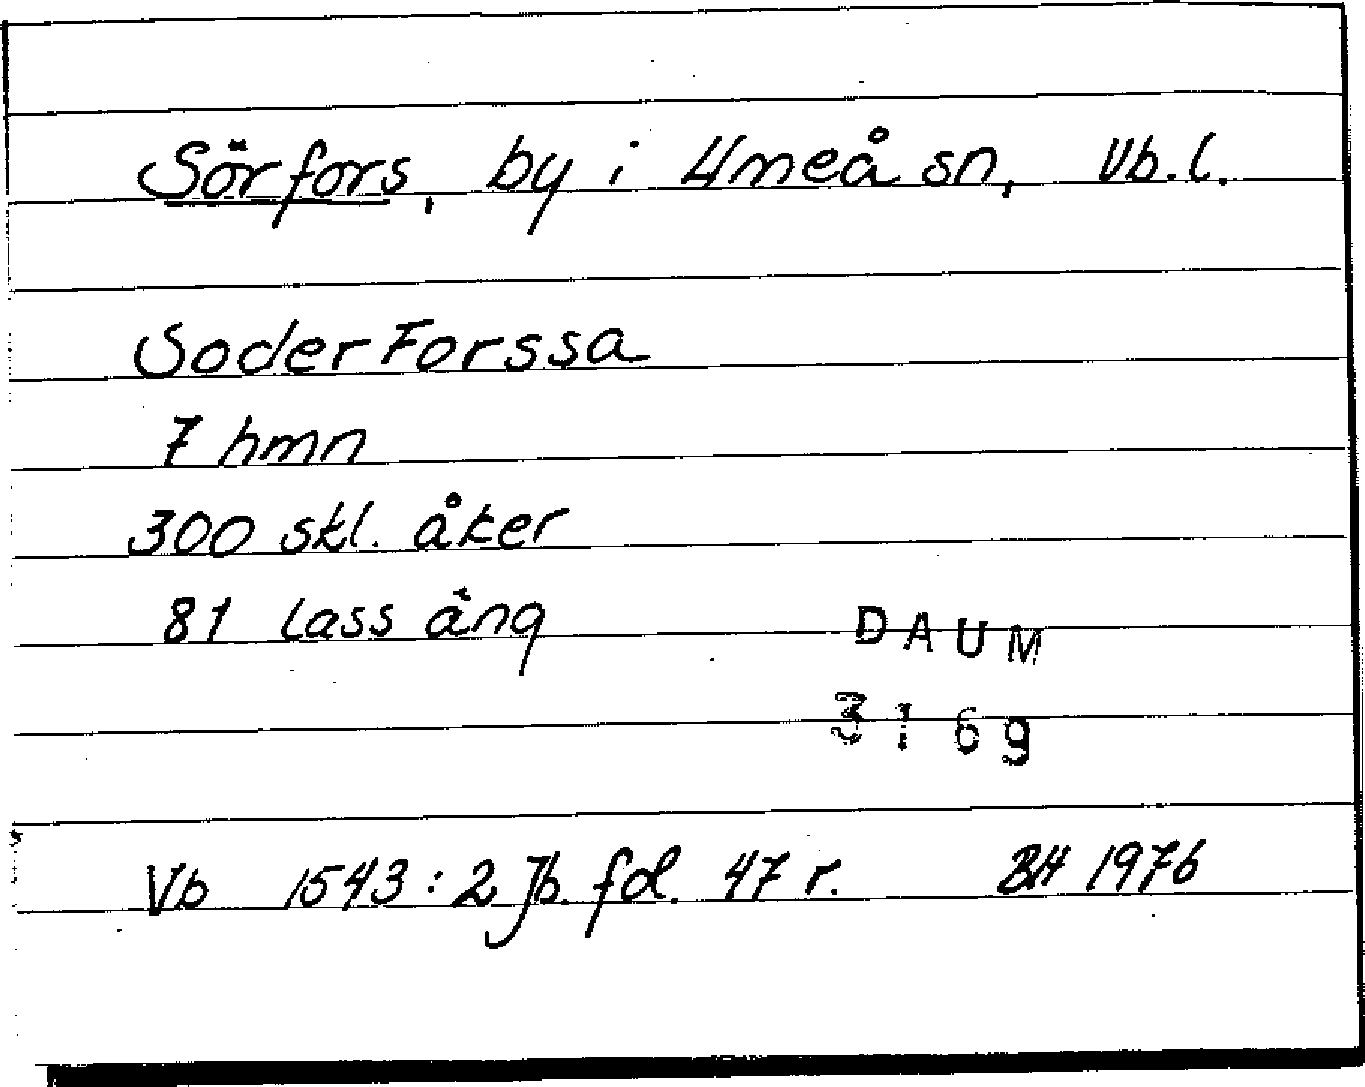 Sörfors, by i Umeå sn, Vb.l.
Soder Forssa
7 hmn
300 skl. åker
81 lass äng
DAUM
3169
Vb 1543:2 Jb. fol. 47 r. BH 1976